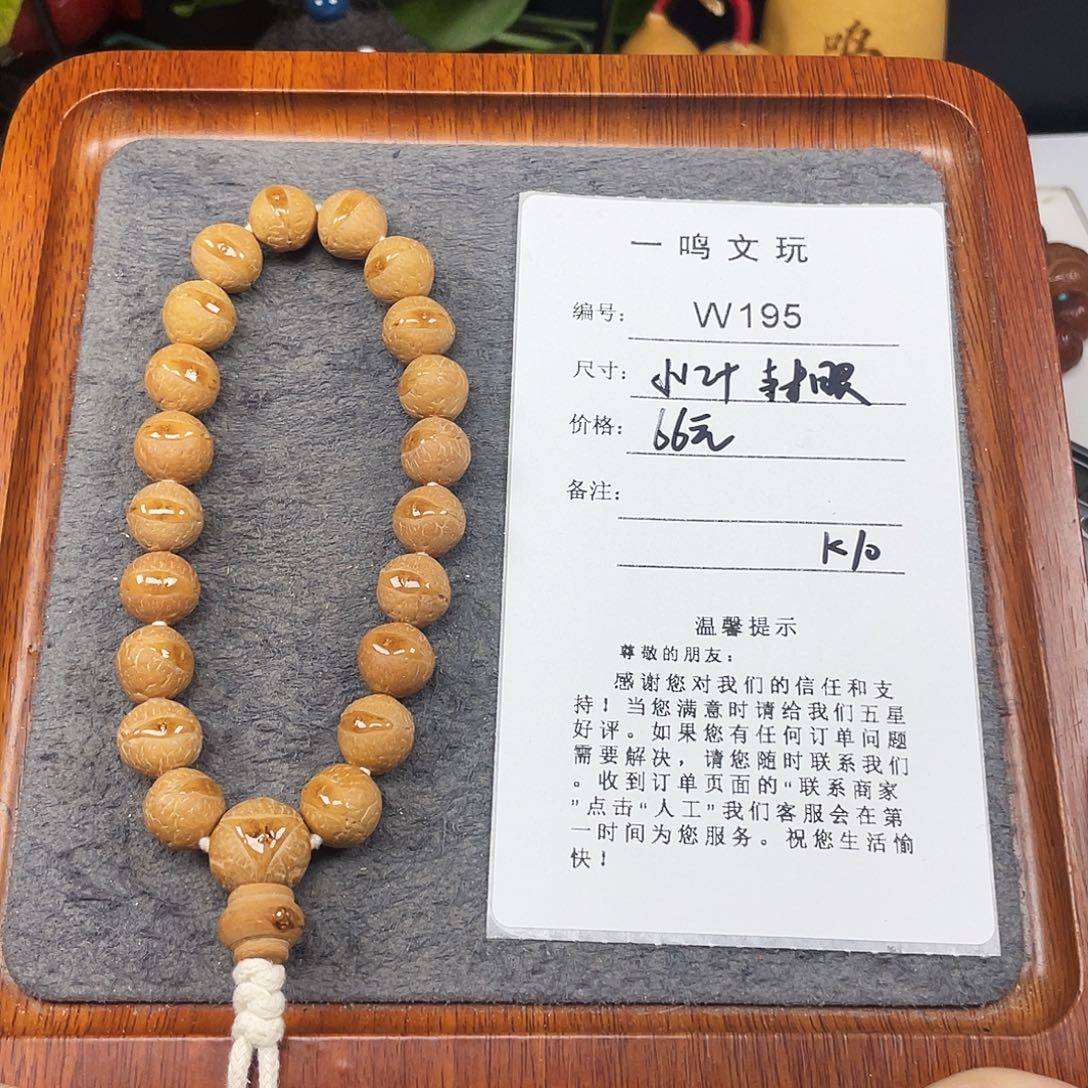 鸣
一鸣文玩
编号： W195
尺寸： 小叶 封眼
价格： 66元
备注：
K10
温馨提示
尊敬的朋友：
感谢您对我们的信任和支
持！当您满意时请给我们五星
好评。如果您有任何订单问题
需要解决，请您随时联系我们
。收到订单页面的“联系商家
”点击“人工”我们客服会在第
一时间为您服务。祝您生活愉
快！